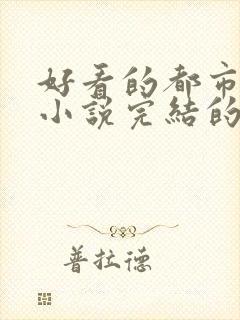 好看的都市
小説完結的
普拉德